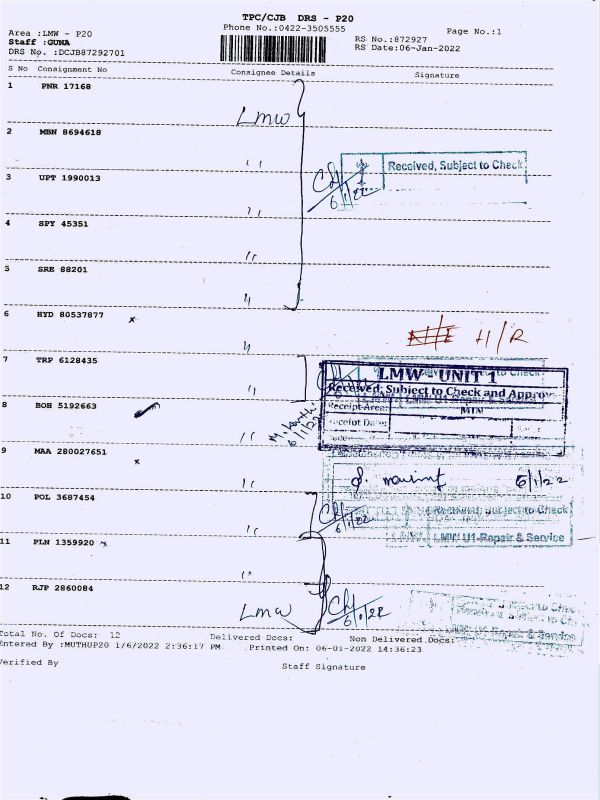 TPC/CJB DRS - P20
Phone No.:0422-3505555
Page No.:1
Area :LMW - P20
Staff :GUNA
DRS No. :DCJB87292701
RS No.:872927
RS Date:06-Jan-2022
S No Consignment No Consignee Details Signature
1 PNR 17168
LMW
2 MBN 8694618
"
Received, Subject to Check
6/1/22
3 UPT 1990013
"
4 SPY 45351
"
5 SRE 88201
"
6 HYD 80537877 x
H/R
"
7 TRP 6128435
LMW UNIT 1
Received, Subject to Check and Approv
Receipt Area: MIN
Receipt Date:
"
8 BOH 5192663
6/1/22
"
9 MAA 280027651 x
6/1/22
"
10 POL 3687454
Received, Subject to Check
6/1/22
LMW U1-Repair & Service
"
11 PLN 1359920 x
"
12 RJP 2860084
LMW
6/1/22
U1-Repair & Service
Total No. Of Docs: 12 Delivered Docs: Non Delivered Docs:
Entered By :MUTHUP20 1/6/2022 2:36:17 PM Printed On: 06-01-2022 14:36:23
Verified By Staff Signature